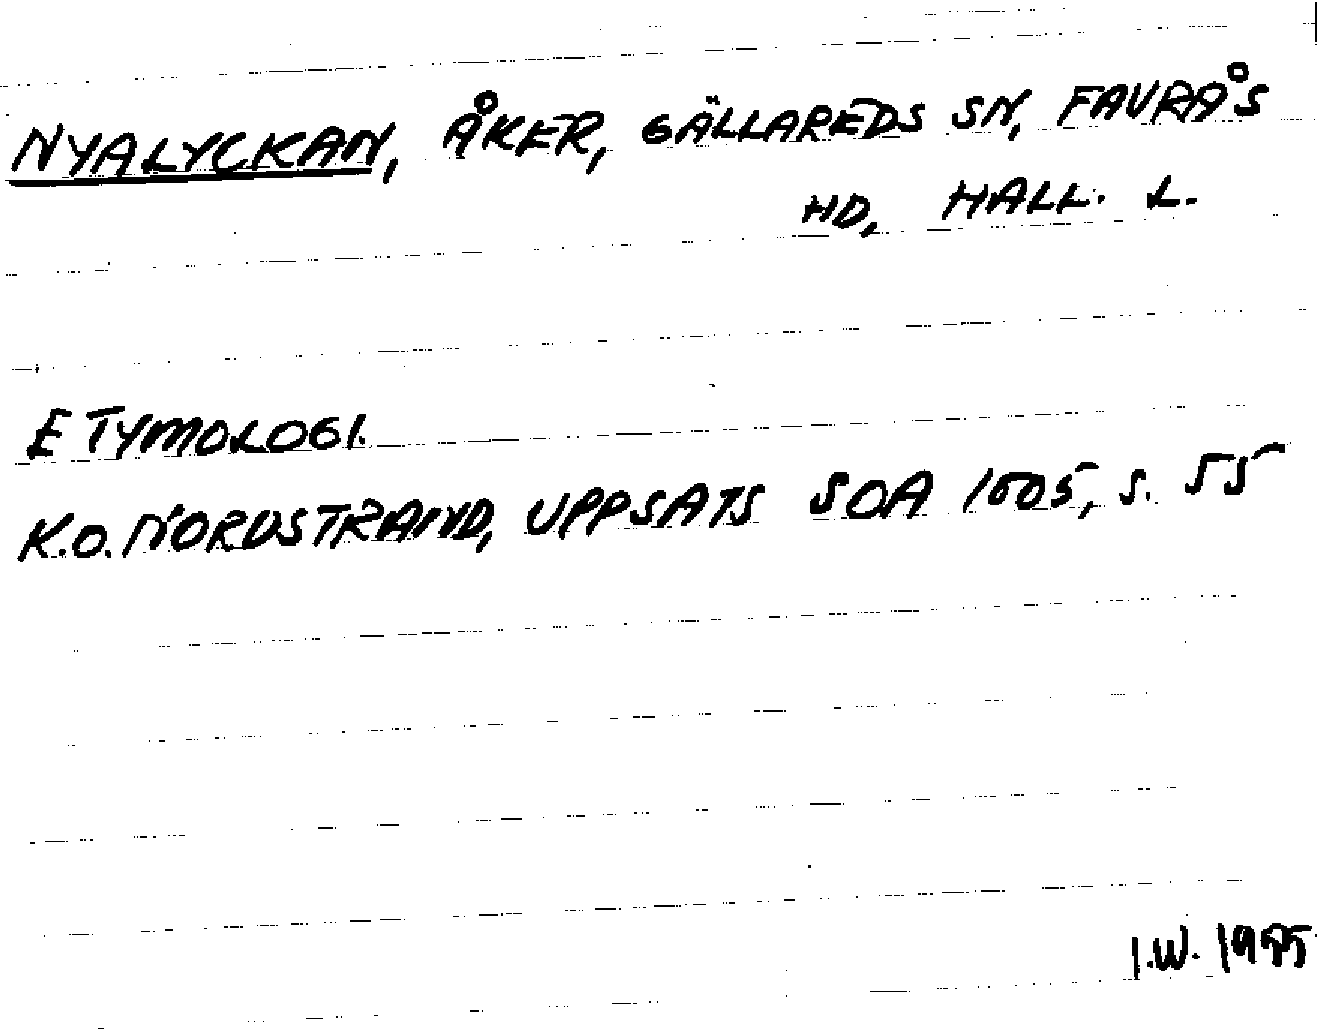 NYALYCKAN, ÅKER, GÄLLAREDS SN, FAURÅS
HD, HALL. L.
ETYMOLOGI.
K.O. NORDSTRAND, UPPSATS SOA 1505, S. 55
I.W. 1985